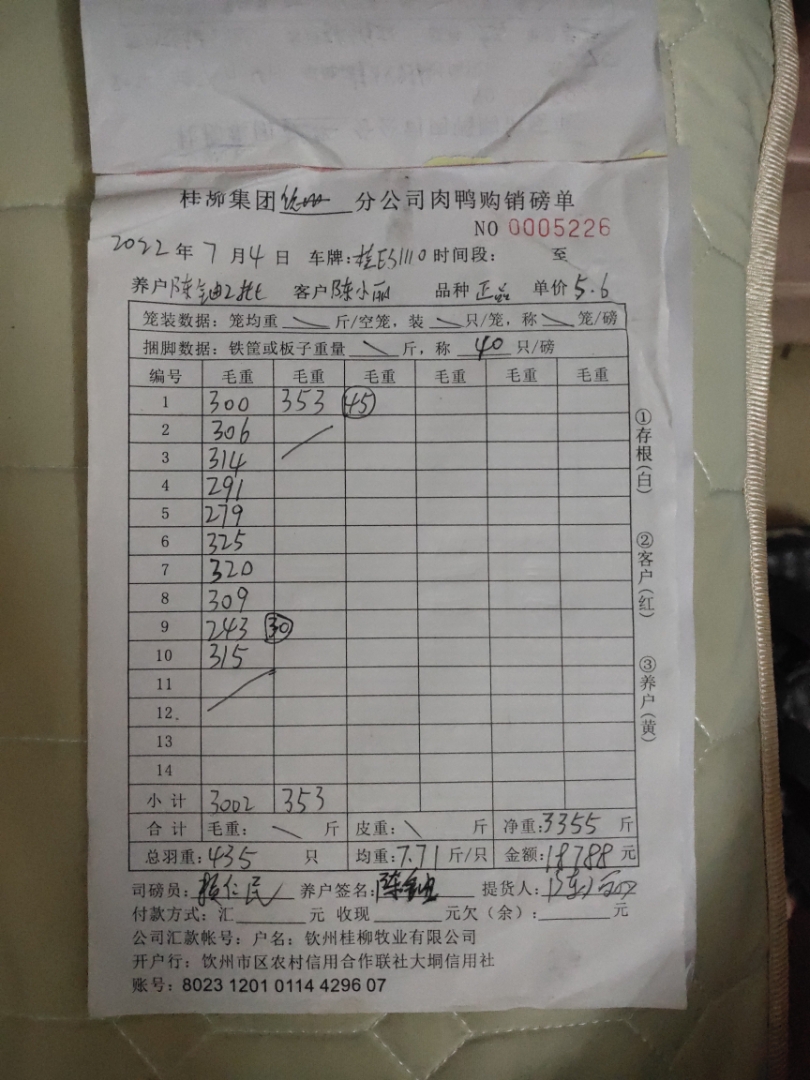 桂柳集团 分公司肉鸭购销磅单
NO 0005226
2022年7月4日 车牌:桂E51110 时间段: 至
养户 陈 客户 陈小丽 品种 正品 单价 5.6
笼装数据:笼均重 \ 斤/空笼,装 \ 只/笼,称 \ 笼/磅
捆脚数据:铁筐或板子重量 \ 斤,称 40 只/磅
编号 毛重 毛重 毛重 毛重 毛重 毛重
1 300 353 45
2 306
3 314
4 291
5 279
6 325
7 320
8 309
9 243 30
10 315
11
12
13
14
小计 3002 353
合计 毛重: \ 斤 皮重: \ 斤 净重:3355 斤
总羽重:435 只 均重:7.71 斤/只 金额:18788 元
司磅员: 仁民 养户签名:陈 提货人:陈小丽
付款方式:汇 元 收现 元欠(余): 元
公司汇款帐号:户名:钦州桂柳牧业有限公司
开户行:钦州市区农村信用合作联社大垌信用社
账号:8023 1201 0114 4296 07
①存根(白)
②客户(红)
③养户(黄)